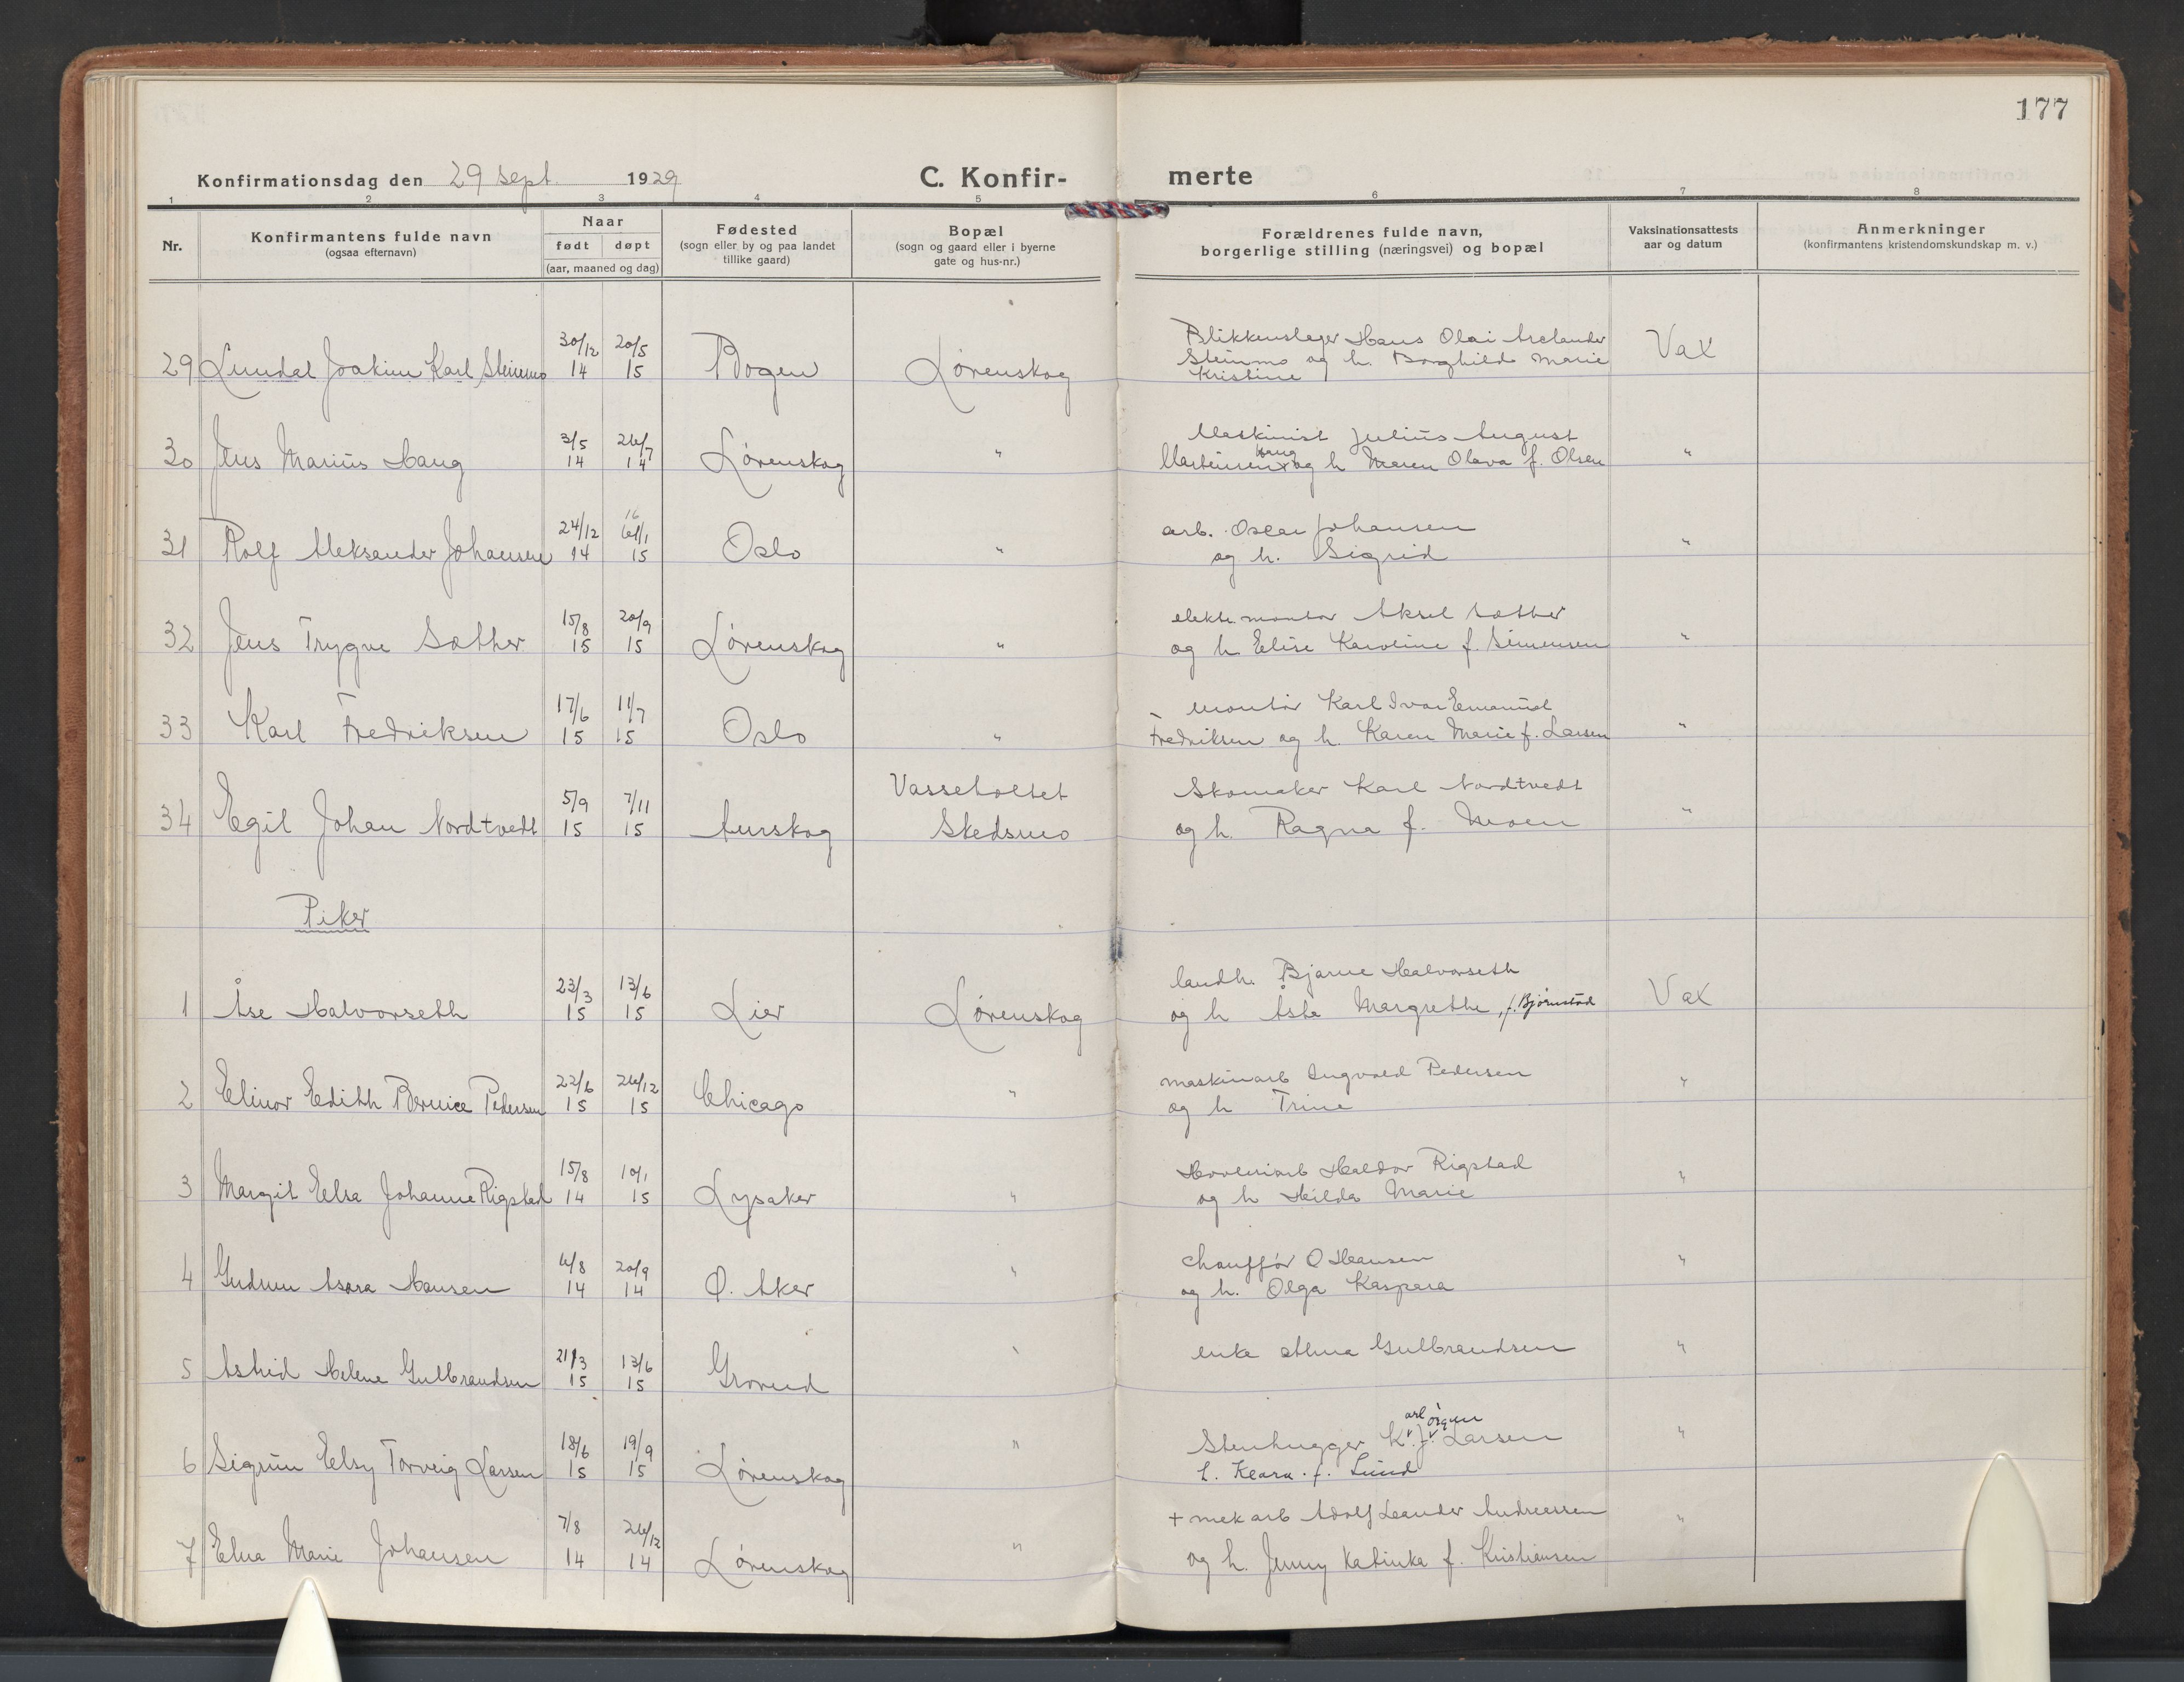 177
Konfirmationsdag den 29 sept. 1929
C. Konfir- merte
1 2 3 4 5 6 7 8
Nr.
Konfirmantens fulde navn
(ogsaa efternavn)
Naar
født døpt
(aar, maaned og dag)
Fødested
(sogn eller by og paa landet
tillike gaard)
Bopæl
(sogn og gaard eller i byerne
gate og hus-nr.)
Forældrenes fulde navn,
borgerlige stilling (næringsvei) og bopæl
Vaksinationsattests
aar og datum
Anmerkninger
(konfirmantens kristendomskundskap m. v.)
30/12 20/5 Blikkenslager Hans Olai
29 Joakim Karl Steinmo 14 15 Bogen Lørenskog Steinmo og h. Borghild Marie Vax
Kristine
3/5 26/7 Maskinist Julius August
30 Jens Marius Haug 14 14 Lørenskog " Martinsen Haug og h Maren Olava f. Olsen "
16
24/12 /1 arb. Oscar Johansen
31 Rolf Aleksander Johansen 14 15 Oslo " og h. Sigrid "
15/8 20/9 elektr. montør Aksel Sæther
32 Jens Trygve Sæther 15 15 Lørenskog " og h Elise Karoline f. Simensen "
17/6 11/7 montør Karl Ivar Emanuel
33 Karl Fredriksen 15 15 Oslo " Fredriksen og h. Karen Marie f. Larsen "
5/9 7/11 Vasseholtet Skomaker Karl Nordtvedt
34 Egil Johan Nordtvedt 15 15 Aurskog Skedsmo og h. Ragna f. Moen "
Piker
23/3 13/6 landh. Bjarne Halvorseth
1 Åse Halvorseth 15 15 Lier Lørenskog og h Åsta Margrethe, f. Bjørnstad Vax
22/6 26/12 maskinarb Ingvald Pedersen
2 Elinor Edith Bernice Pedersen 15 15 Chicago " og h Trine "
15/8 10/1 Haldor Rigstad
3 Margit Elsa Johanne Rigstad 14 15 Lysaker " og h Hilda Marie "
6/8 20/9 chauffør O Hansen
4 Gudrun Asora Hansen 14 14 Ø. Aker " og h. Olga Kaspara "
21/3 13/6 enke Gulbrandsen
5 Astrid Helene Gulbrandsen 15 15 Grorud " "
arl ørgen
18/6 19/9 Stenhugger K. J. Larsen
6 Sigrun Elsy Torveig Larsen 15 15 Lørenskog " h. Klara f. Lund "
7/8 26/12 + mek arb Adolf Leander Andreassen
7 Elna Marie Johansen 14 14 Lørenskog " og h. Jenny Katinka f. Kristiansen "